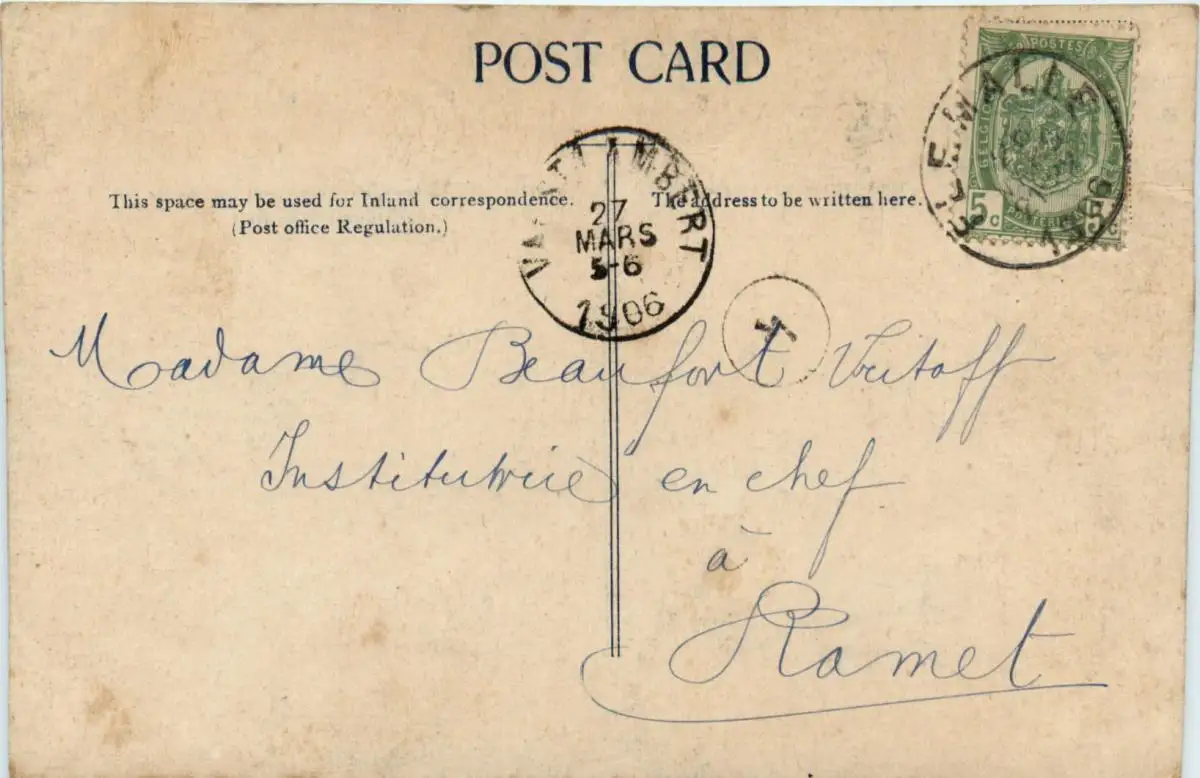 POST CARD
This space may be used for Inland correspondence.
(Post office Regulation.)
The address to be written here.
27
MARS
5-6
1906
POSTES
5c
5c
T
Madame Beaufort
Institutrice en chef
à
Ramet